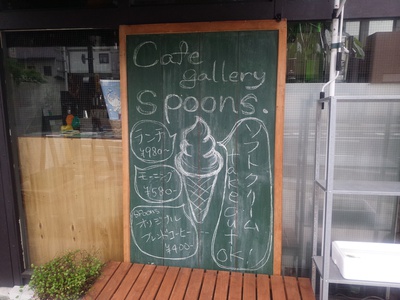 Cafe
gallery
Spoons.
ランチ
¥980~
モーニング
¥580~
spoons
オリジナル
ブレンドコーヒー
¥400~
ソフトクリーム
takeout
OK!